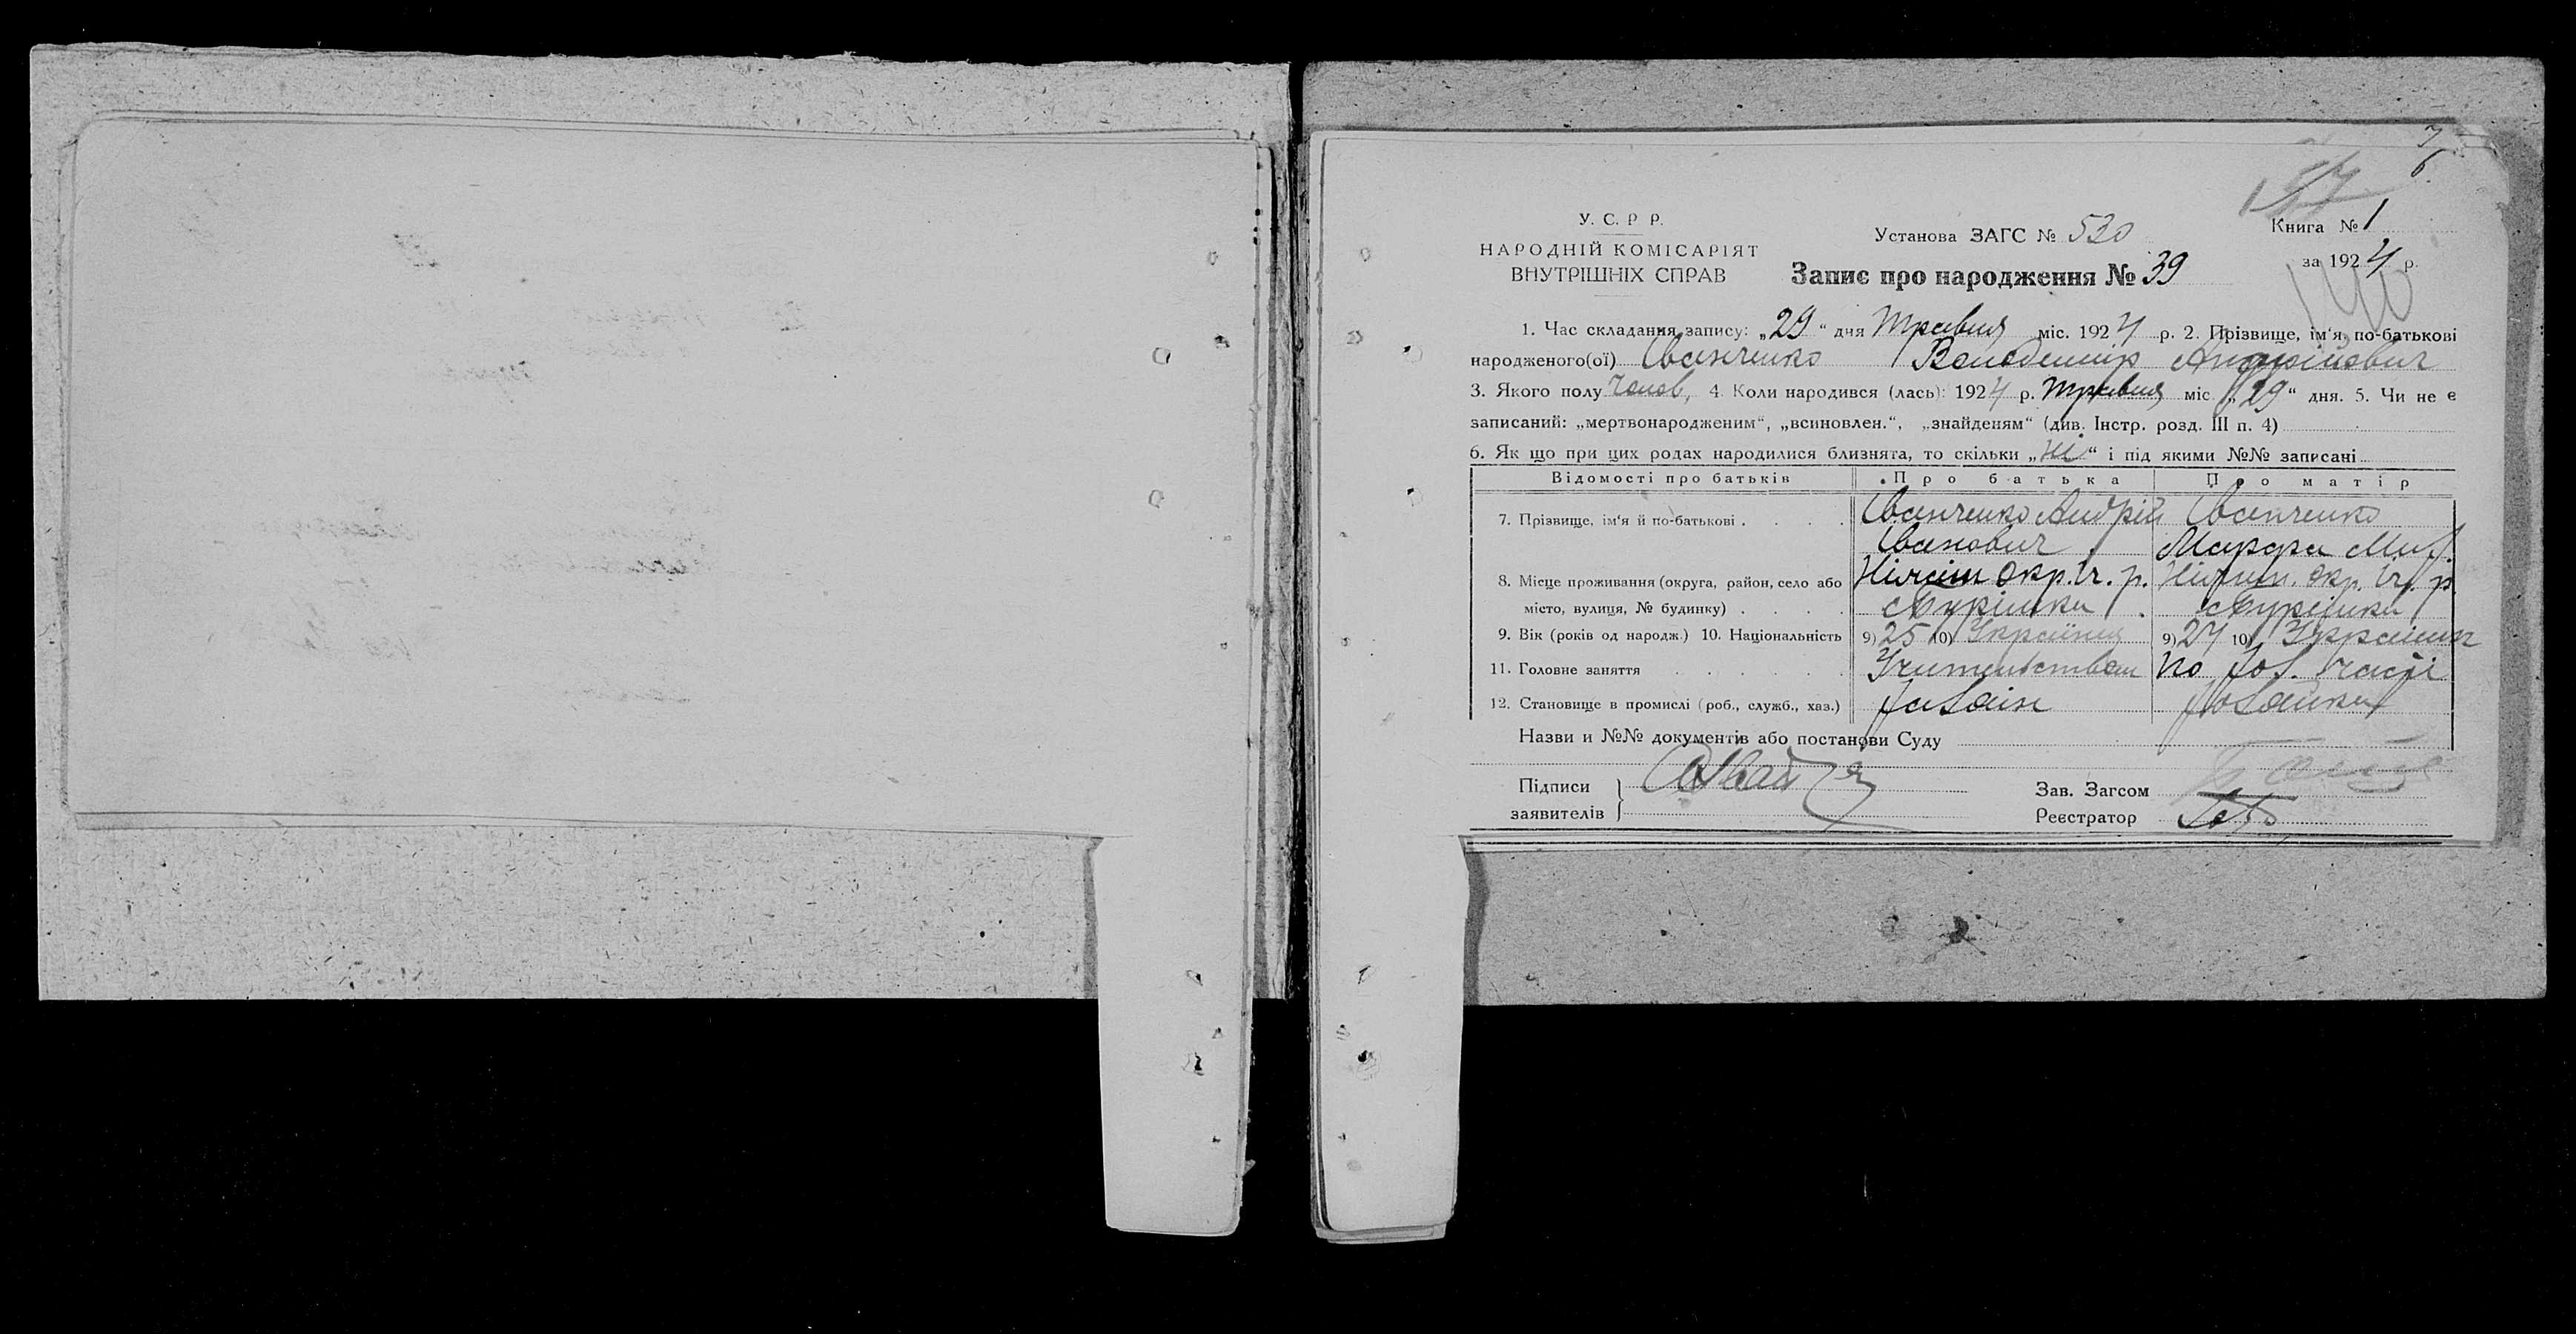 7
6.
157
У. С. Р Р.
НАРОДНІЙ КОМІСАРІЯТ
ВНУТРІШНІХ СПРАВ
Установа ЗАГС № 530
Книга № 1
за 1924 р.
Запис про народження № 39
1. Час складання запису: „29“ дня Травня міс. 1924 р. 2. Прізвище, ім‘я, по-батькові
народженого(ої) Іванченко Володимір Андрійович
3. Якого полу Чолов, 4. Коли народився (лась): 1924 р. Травня міс. „29“ дня. 5. Чи не є
записаний: „мертвонародженим“, „всиновлен.“, „знайденям“ (див. Інстр. розд. III п. 4)
6. Як що при цих родах народилися близнята, то скільки „Ні“ і під якими №№ записані
Відомості про батьків Про батька Про матір
7. Прізвище, ім‘я й по-батькові . . . . Іванченко Андрій Іванченко
Іванович Марфа Мит.
8. Місце проживання (округа, район, село або Ніжин Окр. Іч. р. Ніжин. Окр. Іч. р.
місто, вулиця, № будинку) . . . .
9. Вік (років од народж.) 10. Національність 9) 25 10) Українец 9) 24 10) Українк
11. Головне заняття . . . . . . Учительством По дом. часті
12. Становище в промислі (роб., служб., хаз.) Хазаін Хозайка
Назви и №№ документів або постанови Суду
Підписи
заявителів
Зав. Загсом
Реєстратор